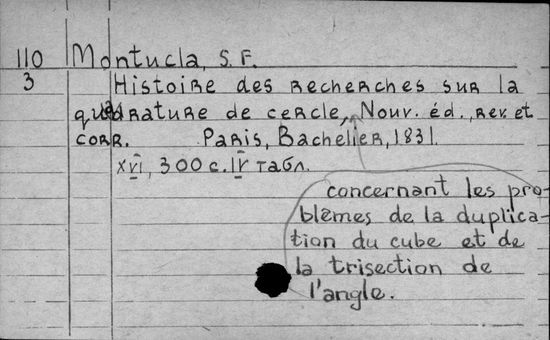 110 Montucla, S. F.
3 Histoire des recherches sur la
quadrature de cercle, Nouv. éd., rev. et
corr. Paris, Bachelier, 1831.
XVI, 300 с. IV табл.
concernant les pro-
blèmes de la duplica-
tion du cube et de
la trisection de
l'angle.